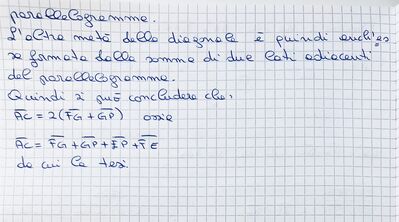 parallelogramma.
L'altra metà della diagonale è quindi anch'es
sa formata dalla somma di due lati adiacenti
del parallelogramma.
Quindi si può concludere che:
AC = 2(FG + GP) ossia
AC = FG + GP + EP + FE
da cui la tesi